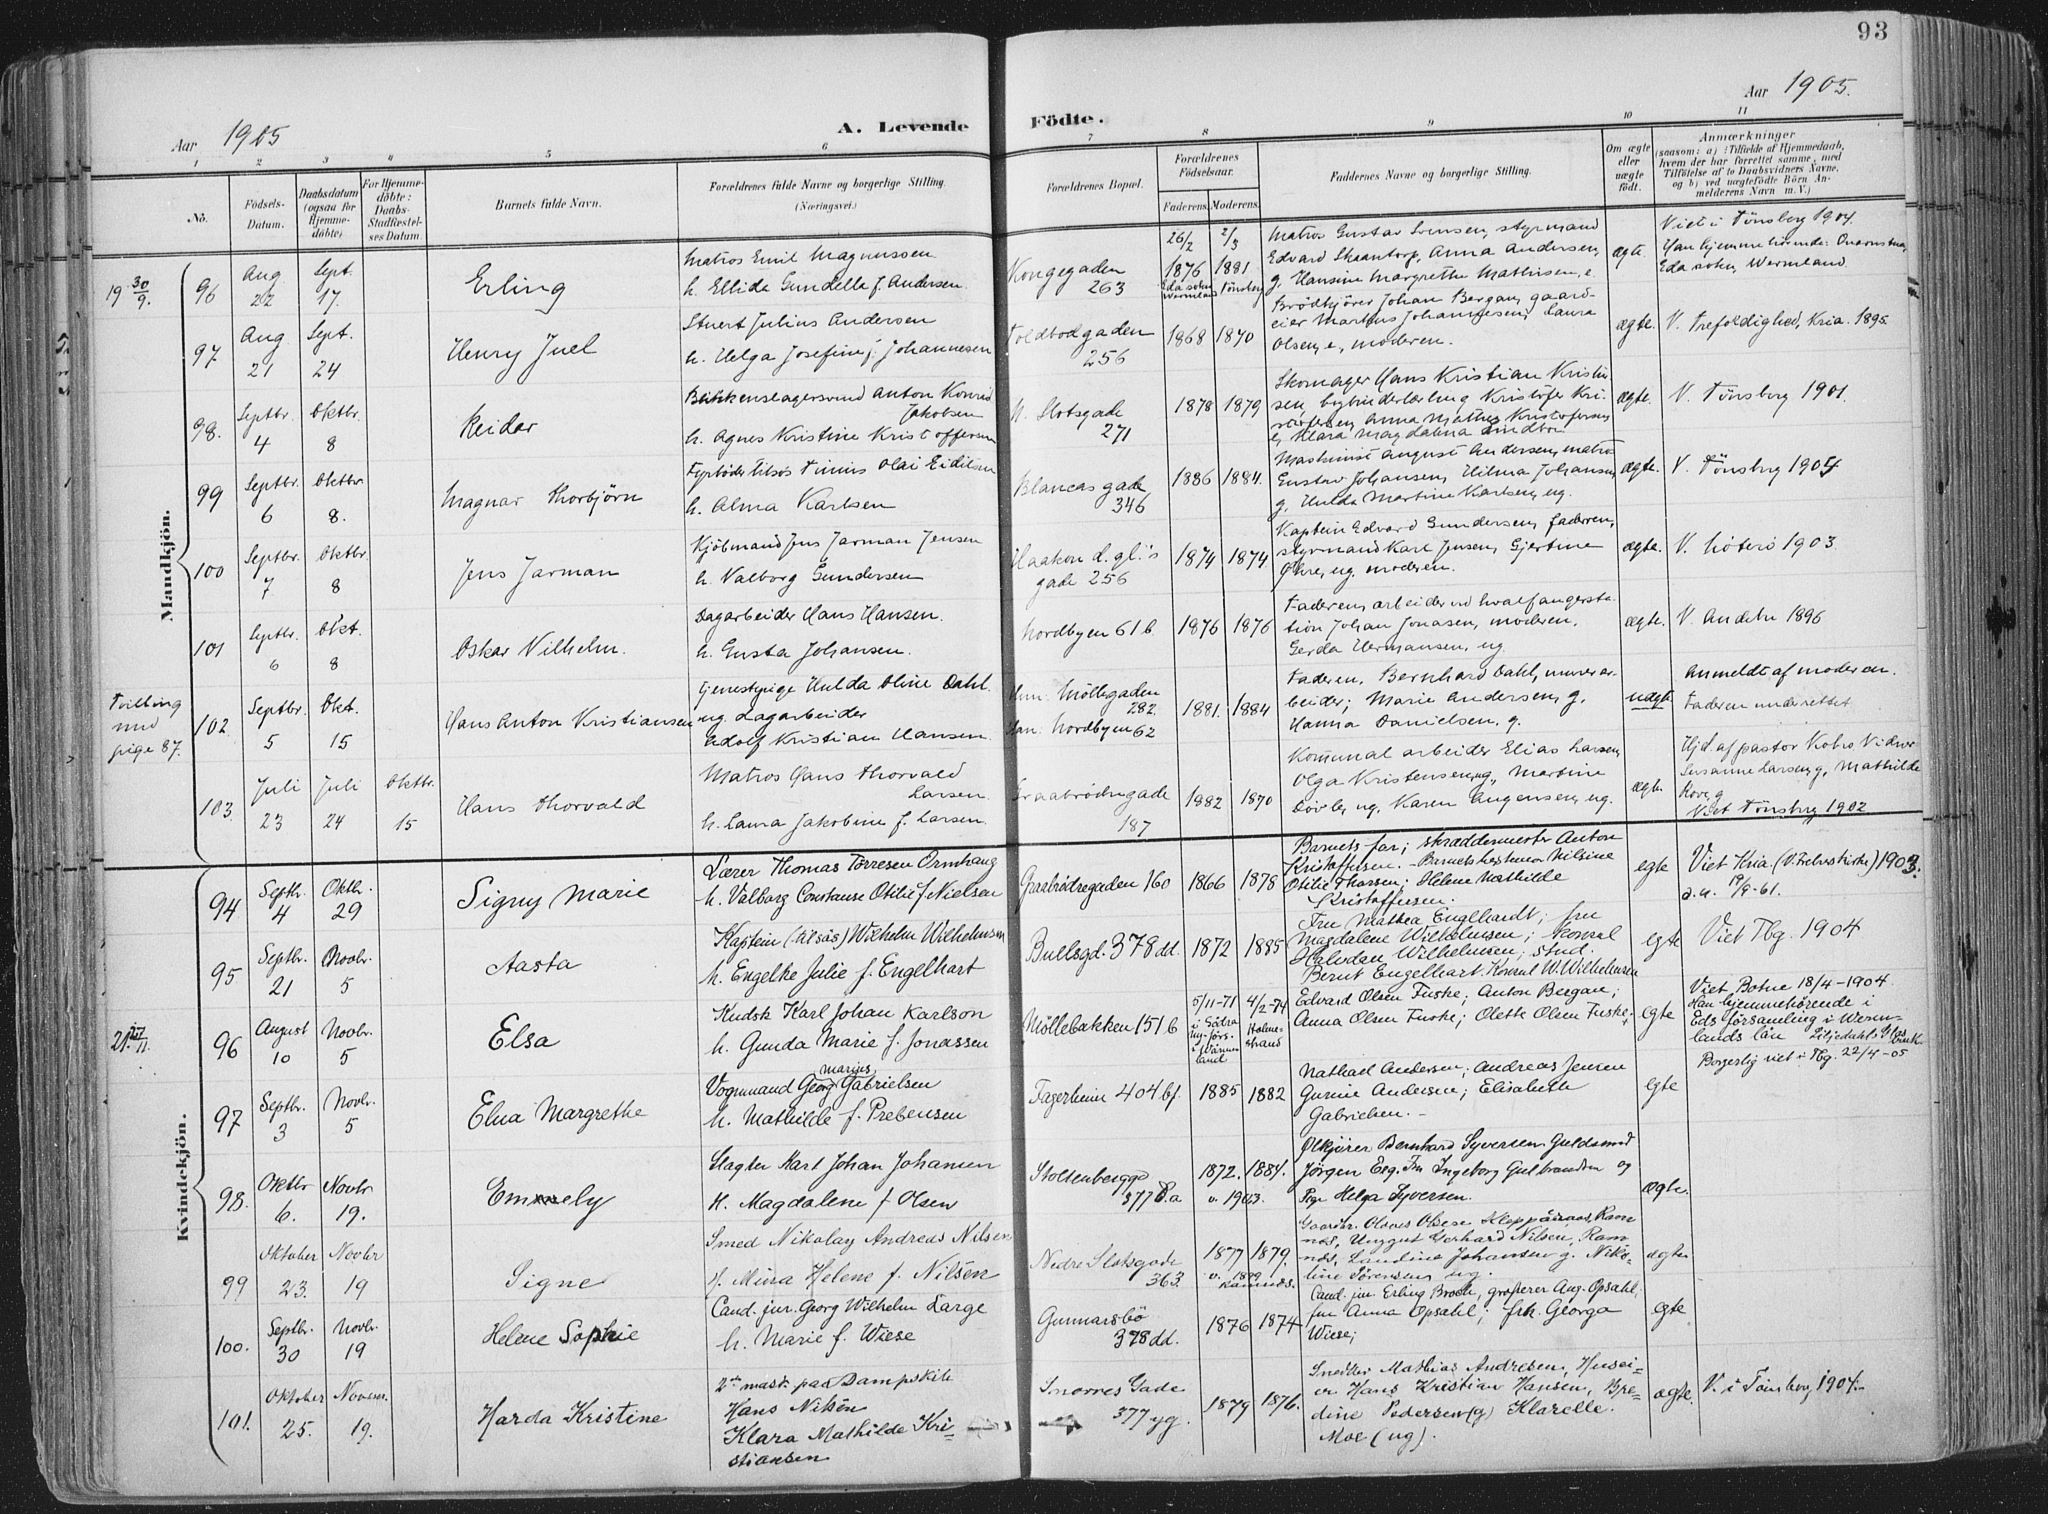 93
Aar 1905
A. Levende
Födte.
Aar 1905.
1 2 3 4 5 6 7 8 9 10 11
No.
Födsels-
Datum.
Daabsdatum
(ogsaa for
Hjemme-
döbte)
For Hjemme-
döbte:
Daabs-
Stadfæstel-
ses Datum
Barnets fulde Navn.
Forældrenes fulde Navne og borgerlige Stilling.
(Næringsvei.)
Forældrenes Bopæl.
Forældrenes
Födselsaar.
Faderens. Moderens.
Faddernes Navne og borgerlige Stilling.
Om ægte
eller
uægte
födt.
Anmærkninger
(saasom: a) i Tilfælde af Hjemmedaab,
hvem der har forrettet samme, med
Tilföielse af to Daabsvidners Navne,
og b) ved uægtefödte Börn An-
melderens Navn m. V.)
Mandkjön.
19 30/9.
96
Aug
22
Sept.
17.
Erling
Matros Emil Magnussen
h. Ellida Gundelle f. Andersen.
Kongegaden
263
26/2
1876
Eda sokn
Wermland
2/3
1881
Tönsberg
Matros Gustav Svensen, styrmand
Edvard Skaantorp, Anna Andersen,
g, Hansine Margrethe Mathisen, e.
ægte.
Viet i Tönsberg 1904
Han hjemmehörende:
Eda sokn, Wermland.
97.
Aug
21
Sept.
24
Henry Juel
Stuert Julius Andersen
h. Helga Josefine f. Johannesen
Toldbodgaden
256
1868 1870
Brödkjörer Johan Bergan, gaard-
eier Martius Johannesen, Laura
Olsen, e, moderen.
ægte.
V. Trefoldighed, Kria. 1895.
98.
Septbr.
4
Oktbr.
8
Reidar
Blikkenslagersvend Anton Konrad
Jakobsen
h. Agnes Kristine Kristoffersen
N. Slotsgade
271
1878 1879
Skomager Hans Kristian Kristi
sen, bogbinderlærling Kristofer Kri-
stofersen, Anna Mathea Kristofersen,
e, Klara Magdalena Lindboe
ægte.
V. Tönsberg 1901.
99
Septbr.
6
Oktbr.
8.
Magnar Thorbjörn
Fyrböder Tinius Olai Eidilsen
h. Alma Karlsen
Blancas gade
346
1886 1884.
Maskinist August Andersen, matros
Gustav Johansen, Hilma Johansen,
g, Hulda Martine Karlsen, ug.
ægte.
V. Tönsberg 1904
100
Septbr.
7
Oktbr.
8
Jens Jarman
Kjöbmand Jens Jarman Jensen
h. Valborg Gundersen
Haakon d. gl.'s
gade 256
1874 1874
Kaptein Edvard Gundersen, faderen,
styrmand Karl Jensen, Gjertine
Öhre, ug. moderen.
ægte.
V. Nöterö 1903.
101
Septbr.
6
Okt.
8
Oskar Vilhelm.
Dagarbeider Hans Hansen.
h. Gusta Johansen.
Nordbyen 61 b
1876 1876
Faderen, arbeider ved hvalfangersta-
tion Johan Jonasen, moderen,
Gerda Hermansen, ug.
ægte.
V. Andebu 1896
Tvilling
med
pige 87.
102
Septbr.
5
Okt.
15
Hans Anton Kristiansen
Tjenestepige Hulda Oline Dahl.
ug. Dagarbeider
Adolf Kristian Hansen.
Hun: Möllegaden
282.
Han: Nordbyen 62
1881. 1884
Faderen, Bernhard Dahl, murerar-
beider; Marie Andersen, g,
Hanna Danielsen, g.
uægte
Anmeldt af moderen.
Faderen underrettet
103.
Juli
23
Juli
24
Oktbr.
15
Hans Thorvald
Matros Hans Thorvald
Larsen
h. Laura Jakobine f. Larsen.
Graabrödregade
187
1882 1870
Kommunal arbeider Elias Larsen,
Olga Kristensen, ug, Martine
Dövle, ug. Karen Augensen, ug.
ægte.
Hjd. af pastor Kobro Vidner
Susanne Larsen, g, Mathilde
Rove, g
Viet Tönsberg 1902
Kvindekjön.
94
Septbr.
4
Oktbr.
29
Signy Marie
Lærer Thomas Törresen Ormhaug
h. Valborg Constanse Otilie f. Nielsen
Graabrödregaden 160
1866 1878
Barnets far; skræddermester Anton
Kristoffersen. - Barnets Nilsine
Otilie Thorsen; Helene Mathilde
Kristoffersen.
egte
Viet Kria. (V. Petruskirke) 1903.
d. u. 19/9-61.
95
Septbr.
21
Novbr.
5
Aasta
Kaptein (tilsös) Wilhelm Wilhelmsen
h. Engelke Julie f. Engelhart
Bullsgd. 378 dd.
1872 1885
Fru Mathea Englhardt; fru
Magdalene Wilhelmsen; Konsul
Halvdan Wilhelmsen; stud.
Bernt Engelhart. Konsul W. Wilhelmsen
egte
Viet Tbg. 1904
21 27/11.
96
August
10
Novbr.
5
Elsa
Kudsk Karl Johan Karlson
h. Gunda Marie f. Jonassen
Möllebakken 151 b
5/11-71
4/2-74
Holme-
strand
Edvard Olsen Fuske; Anton Bergan;
Anna Olsen Fuske; Olette Olsen Fuske.
egte
Viet Botne 18/4-1904
Han hjemmehörende i
Eds församling i Werm-
lands län
97
Septbr.
3
Novbr.
5
Elna Margrethe
Vognmand Georg Marius Gabrielsen
h. Mathilde f. Prebensen
Fagerheim 404 bf.
1885 1882
Nathael Andersen; Andreas Jensen
Gurine Andersen; Elisabeth
Gabrielsen. -
egte
Borgerlig viet i Tbg. 22/4-05
98.
Oktbr
6.
Novbr
19.
Emely
Slagter Karl Johan Johansen
H. Magdalene f Olsen
Stoltenbergsg
377 P.a
1872. 1884.
v. 1903.
Ølkjörer Bernhard Syversen. Guldsmed
Jörgen Eeg. Fru Ingeborg Gulbrandsen og
Pige Helga Syversen.
ægte.
99
Oktober
23.
Novbr
19
Signe
Smed Nikolay Andreas Nilsen
H. Mina Helene f. Nilsen
Nedre Slotsgade
363.
1877 1879.
v. 1899
Ramnæs.
Gaardbr. Olaves Olsen Kleppaunas, Ram-
næs, Unggut Gerhard Nilsen, Ram-
næs, Laudine Johansen g. Niko-
line Sörensen, ug.
ægte
100.
Septbr.
30
Novbr.
19
Helene Sophie
Cand. jur. Georg Wilhelm Darge
h. Marie f. Wiese
Gunnarsbö
378 dd.
1876 1874
Cand. jur. Erling Broch, grosserer Aug. Opsahl,
fru Anna Opsahl; frk. Georga
Wiese;
egte
101.
Oktober
25.
November
19.
Harda Kristine
2den mask. paa Dampskib
Hans Nilsen
Klara Mathilde Kri
stiansen
Snorres Gade
377 yg.
1879 1876.
Snedker Mathias Andresen, Husei-
er Hans Kristian Hansen, Bre-
dine Pedersen (g) Klarelle.
Moe (ug).
ægte.
V. i Tönsberg 1904.